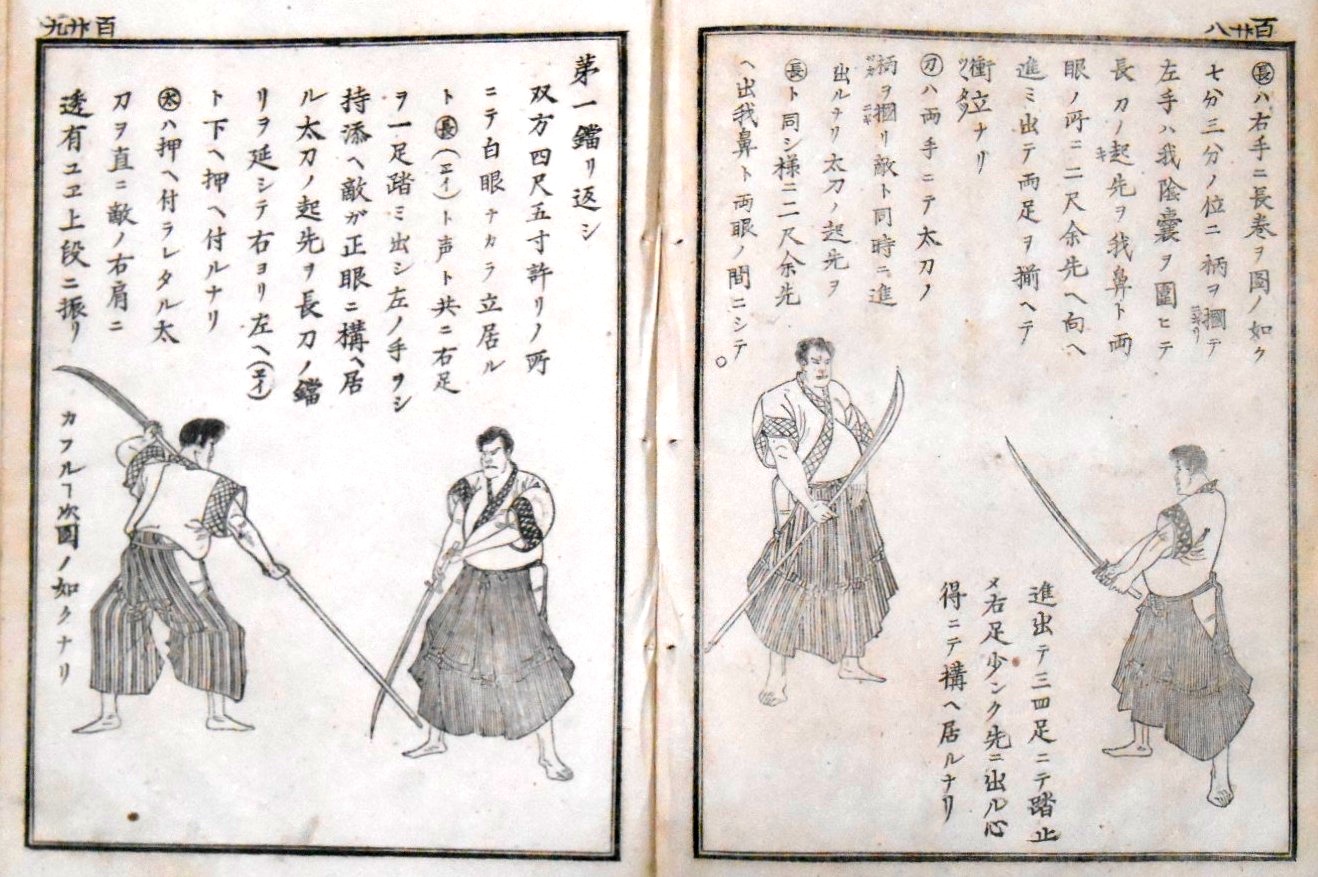 百廿八
㊧ハ右手ニ長巻ヲ圖ノ如ク
七分三分ノ位ニ柄ヲ摑テ
左手ハ我陰嚢ヲ圍ヒテ
長刀ノ起先ヲ我鼻ト両
眼ノ所ニ二尺余先ヘ向ヘ
進ミ出テ両足ヲ揃ヘテ
衝立ナリ
刀ハ両手ニテ太刀ノ
柄ヲ摑リ敵ト同時ニ進
出ルナリ太刀ノ起先ヲ
長ト同シ様ニ二尺余先
ヘ出我鼻ト両眼ノ間ニシテ
○
進出テ三四足ニテ踏止
メ右足少シク先ニ出ル心
得ニテ構ヘ居ルナリ
百廿九
第一鐺リ返シ
双方四尺五寸許リノ所
ニテ白眼ナカラ立居ル
ト長(エイ)ト声ト共ニ右足
ヲ一足踏ミ出シ左ノ手ヲシ
持添ヘ敵ガ正眼ニ構ヘ居
ル太刀ノ起先ヲ長刀ノ鐺
リヲ延シテ右ヨリ左ヘ(エイ)
ト下ヘ押ヘ付ルナリ
太ハ押ヘ付ラレタル太
刀ヲ直ニ敵ノ右肩ニ
透有ユヱ上段ニ振リ
カフルヿ次圖ノ如クナリ